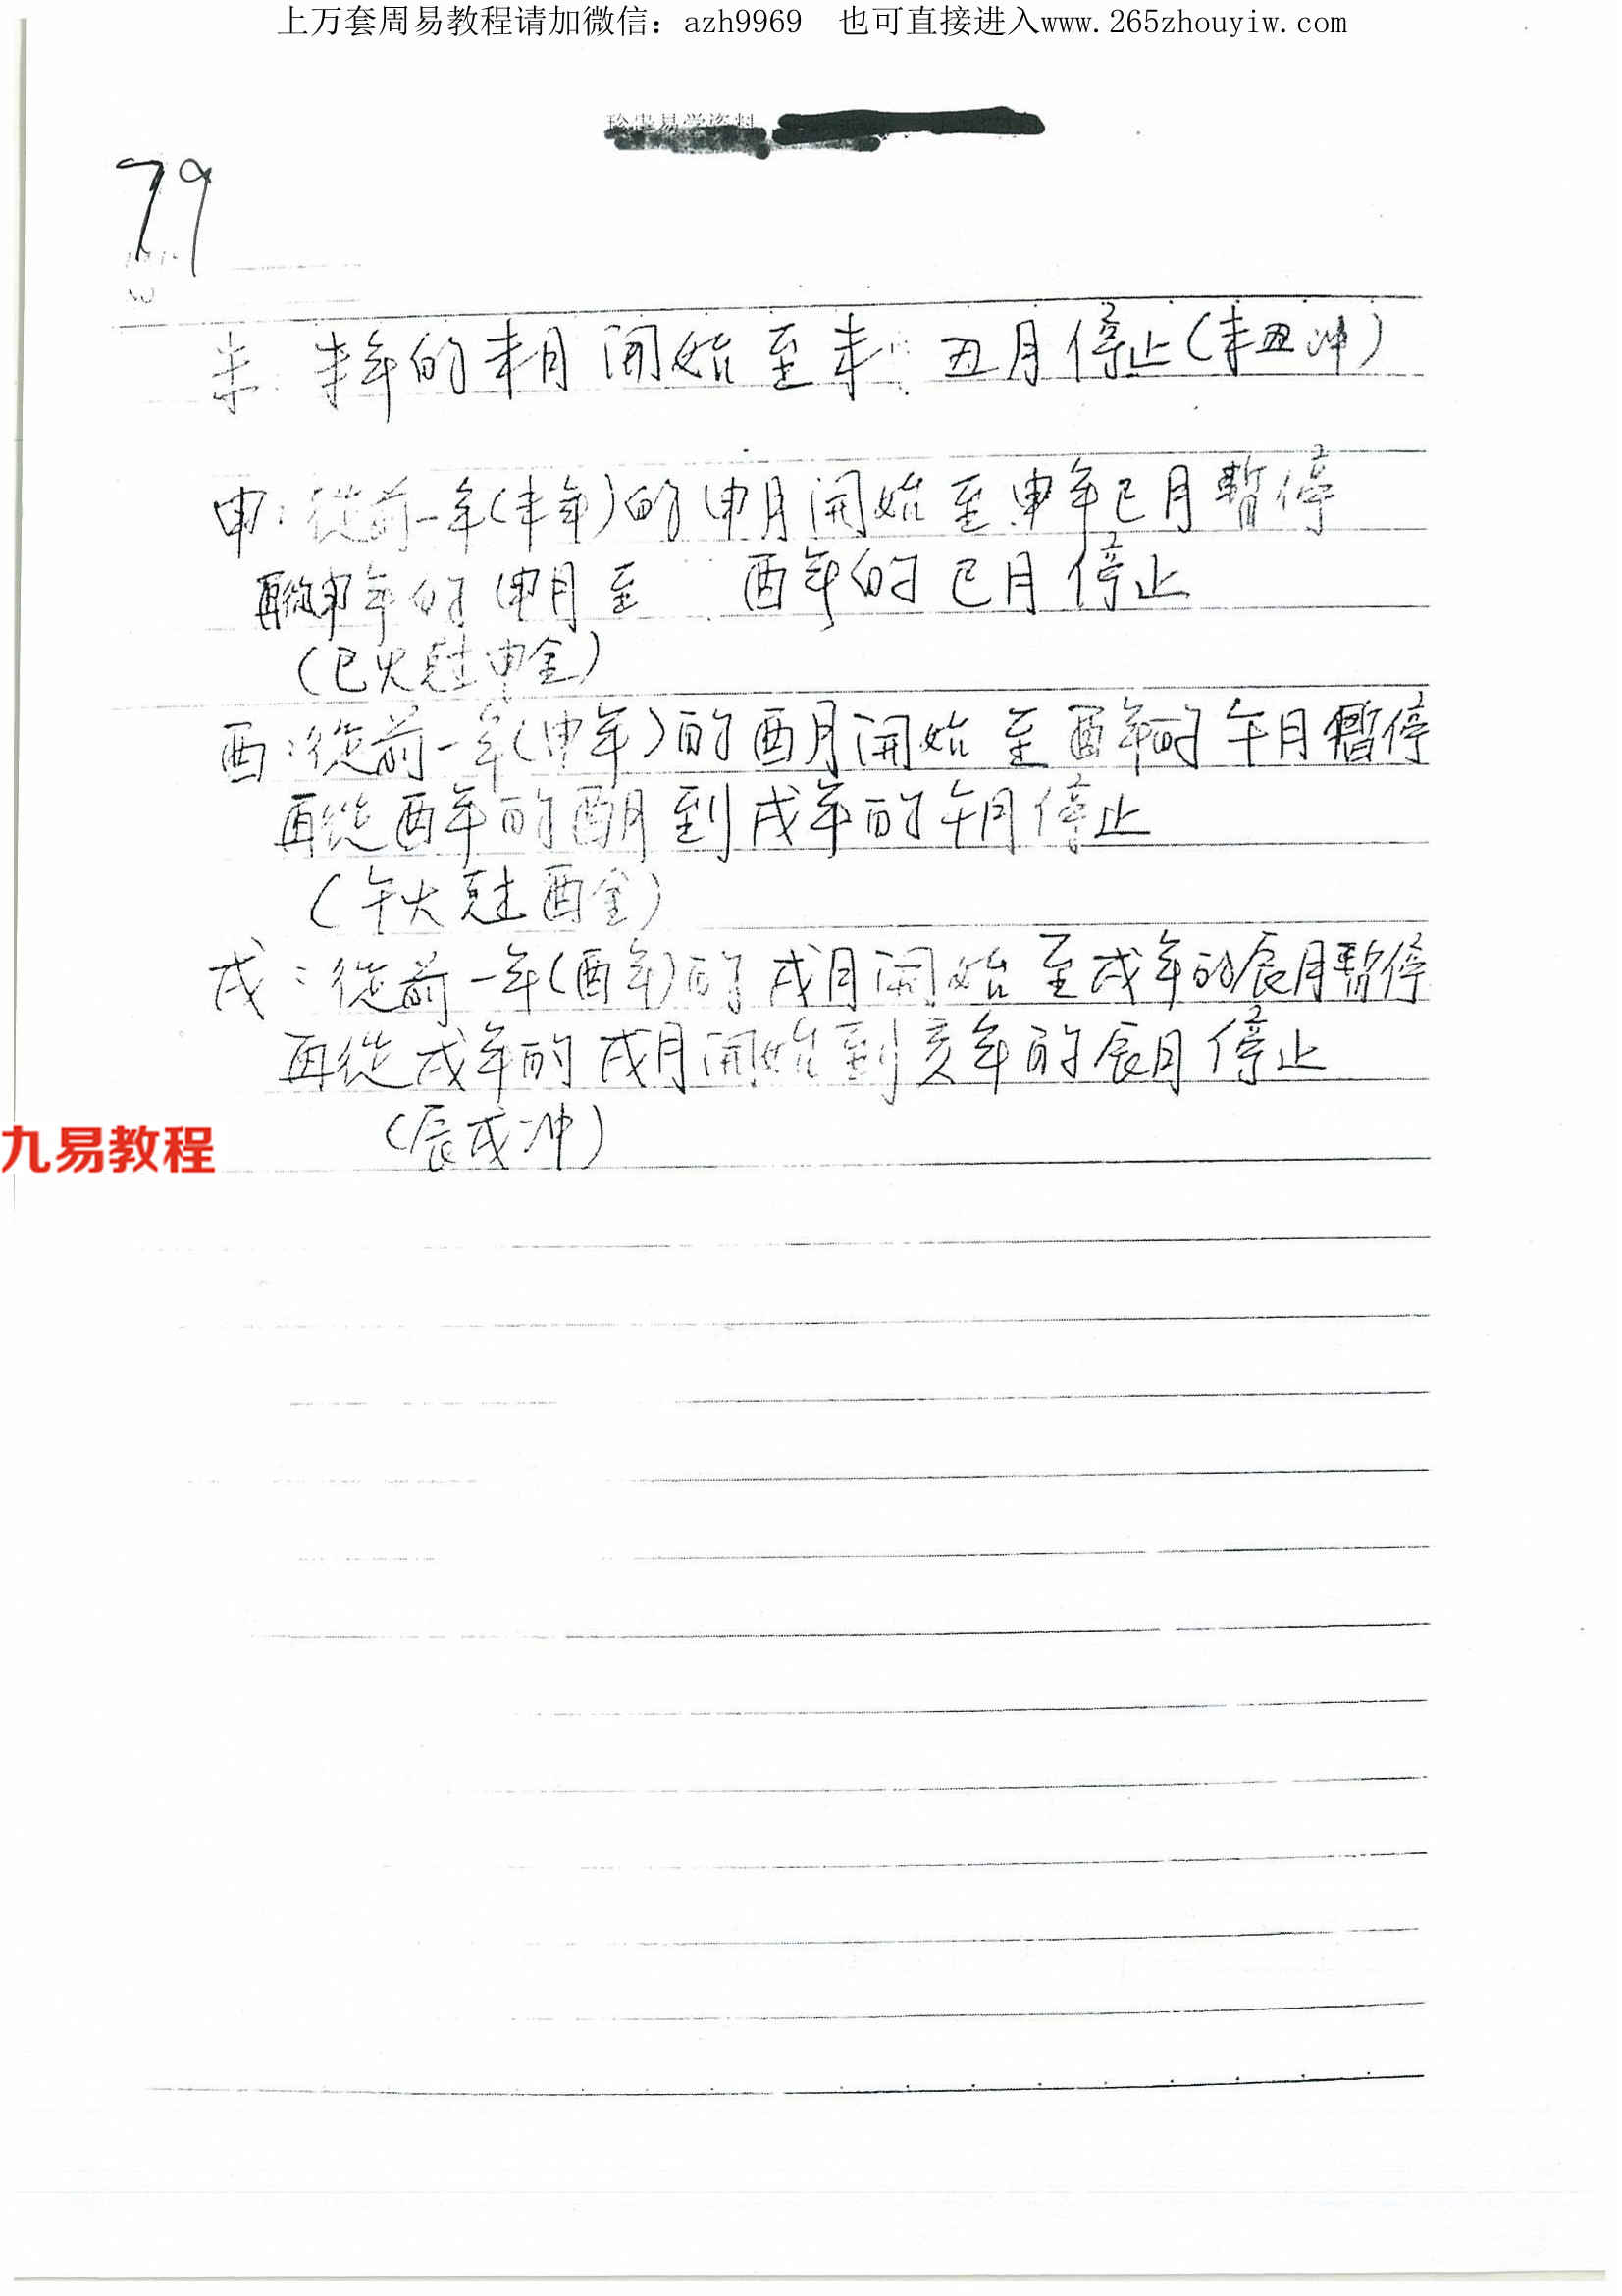 上万套周易教程请加微信：azh9969　也可直接进入www.265zhouyiw.com
79
未：未年的未月開始至未 丑月停止(未丑冲)
申：從前一年(未年)的申月開始至申年巳月暫停
再從申年的申月至 酉年的巳月停止
(巳火尅申金)
酉：從前一年(申年)的酉月開始至酉年的午月暫停
再從酉年的酉月到戌年的午月停止
(午火尅酉金)
戌：從前一年(酉年)的戌月開始至戌年的辰月暫停
再從戌年的戌月開始到亥年的辰月停止
(辰戌冲)
九易教程